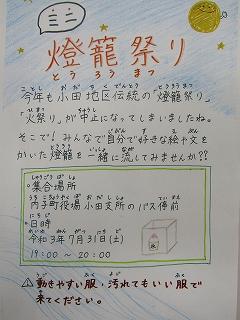 ミニ
燈籠祭り
とうろうまつ
今年も小田地区伝統の「燈籠祭り」
「火祭り」が中止になってしまいましたね。
そこで！みんなで自分で好きな絵や文を
かいた燈籠を一緒に流してみませんか??
・集合場所
内子町役場小田支所のバス停前
・日時
令和3年7月31日(土)
19:00～20:00
⚠動きやすい服・汚れてもいい服で
来てください。